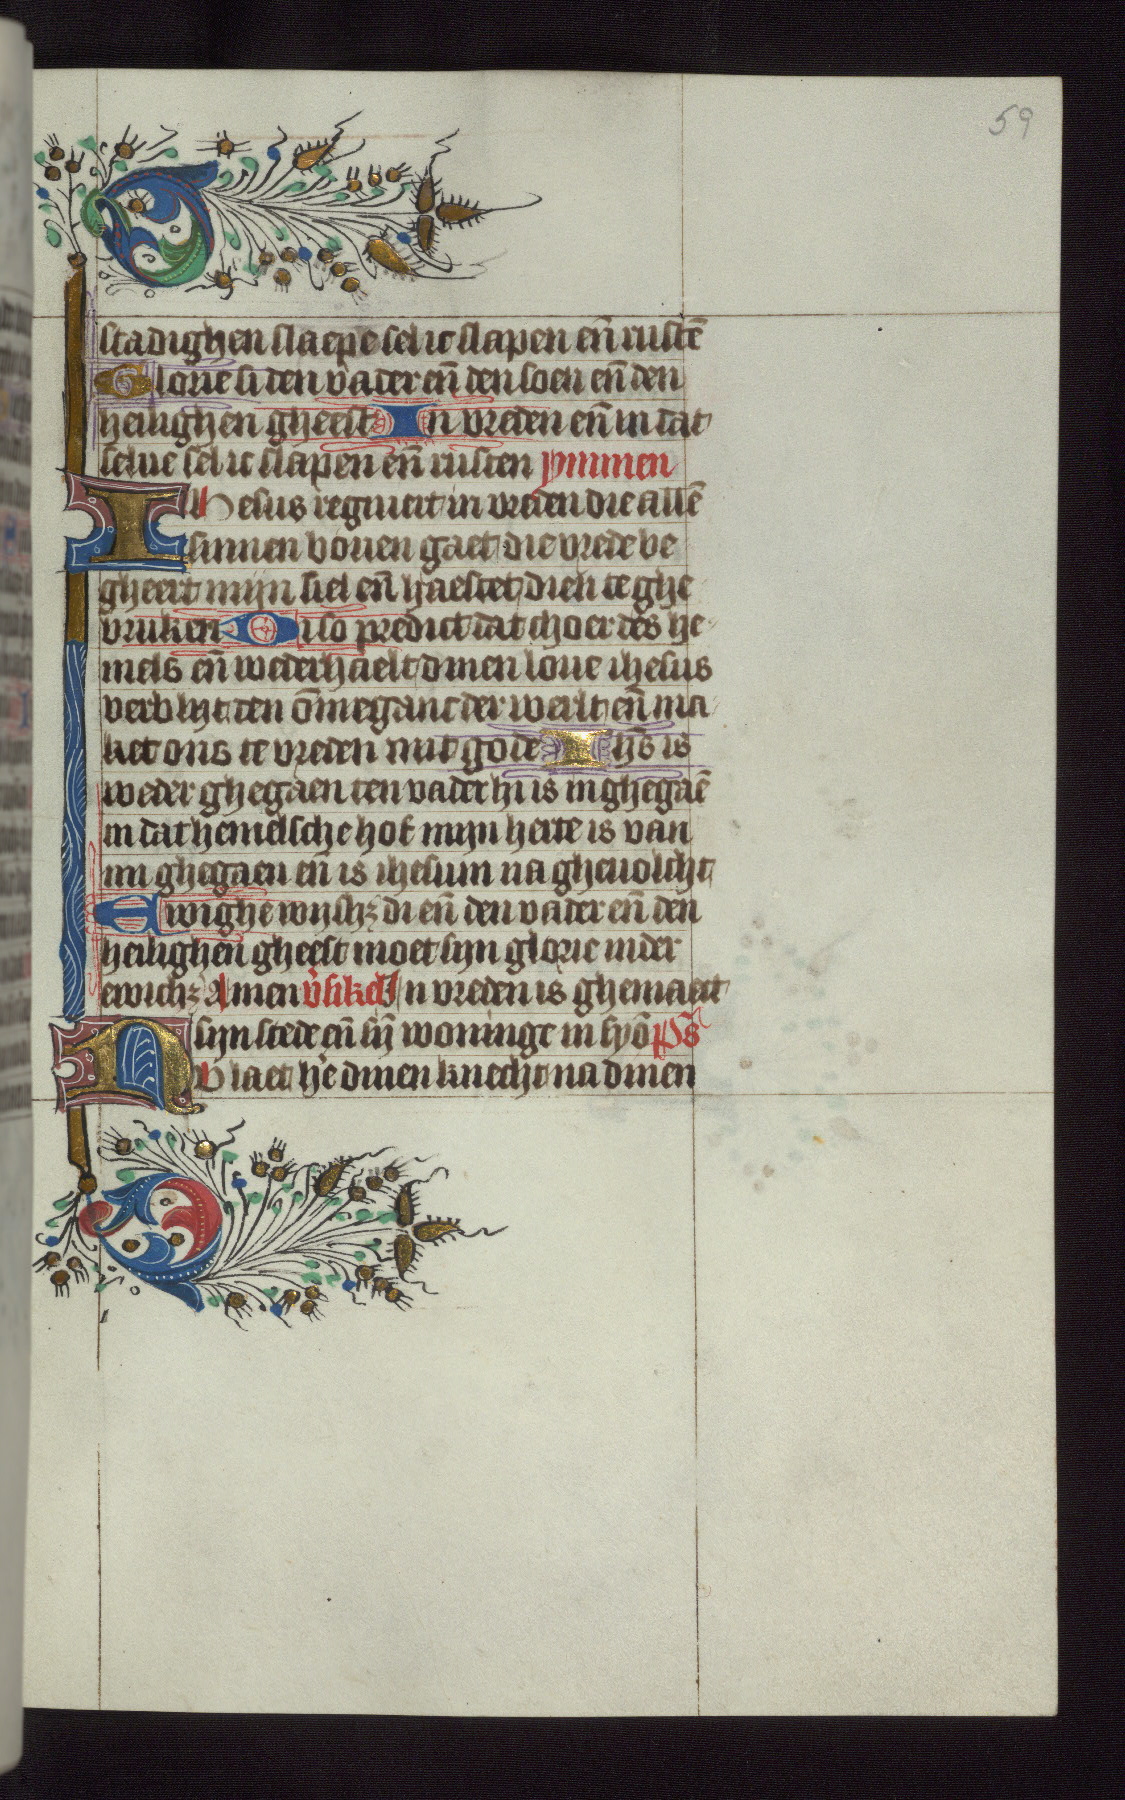 59
stadighen slaepe sel ic slapen en̄ rustē
Glorie si den vader en̄ den soen en̄ den
heilighen gheest In vreden en̄ in dat
selue sel ic slapen en̄ rusten ymmen
Ihesus regniert in vreden die allē
sinnen bouen gaet die vrede be
gheert mijn siel en̄ haestet dien te ghe
bruken Diso predict dat choer des he
mels en̄ wederhaelt dinen loue ihesus
verblijt den ōmeganc der werlt en̄ ma
ket ons te vreden mit gode Ihs̄ is
weder ghegaen ten vader hi is inghegaē
in dat hemelsche hof mijn herte is van
mi ghegaen en̄ is ihesum na gheuolcht
Ewighe wijsh di en̄ den vader en̄ den
heilighen gheest moet sijn glorie in der
ewich Amen v̄sikel In vreden is ghemaect
sijn stede en̄ sij̄ woninge in syō ps̄
Nv laet he dinen knecht na dinen